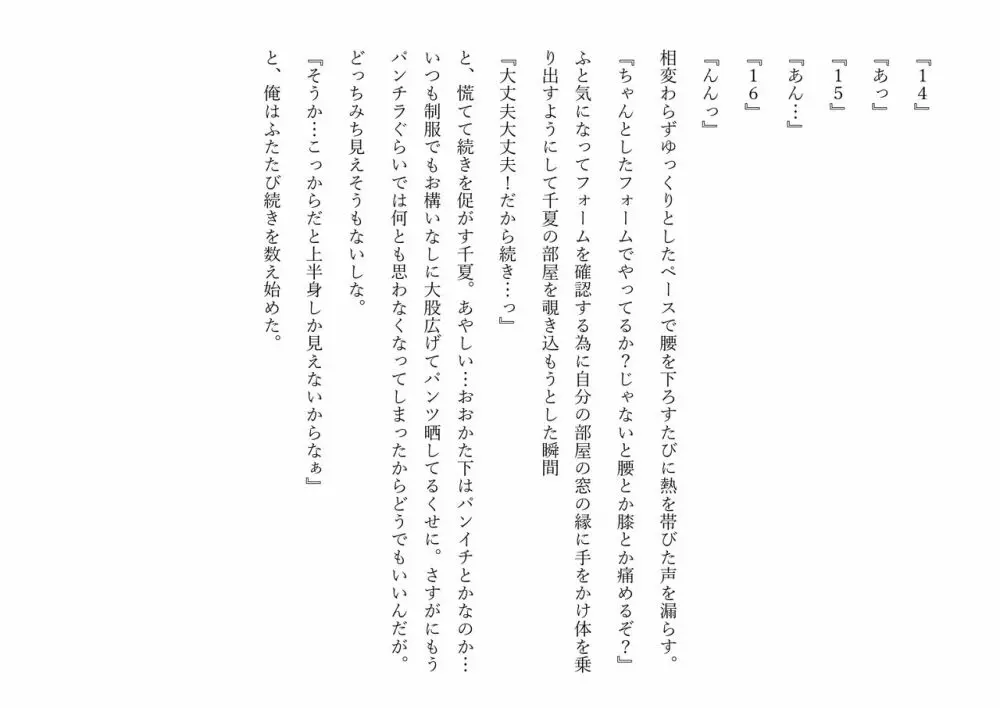 『14』
『あっ』
『15』
『あん…』
『16』
『んんっ』
相変わらずゆっくりとしたペースで腰を下ろすたびに熱を帯びた声を漏らす。
『ちゃんとしたフォームでやってるか？じゃないと腰とか膝とか痛めるぞ？』
ふと気になってフォームを確認する為に自分の部屋の窓の縁に手をかけ体を乗
り出すようにして千夏の部屋を覗き込もうとした瞬間
『大丈夫大丈夫！だから続き…っ』
と、慌てて続きを促がす千夏。あやしい…おおかた下はパンイチとかなのか…
いつも制服でもお構いなしに大股広げてパンツ晒してるくせに。さすがにもう
パンチラぐらいでは何とも思わなくなってしまったからどうでもいいんだが。
どっちみち見えそうもないしな。
『そうか…こっからだと上半身しか見えないからなぁ』
と、俺はふたたび続きを数え始めた。